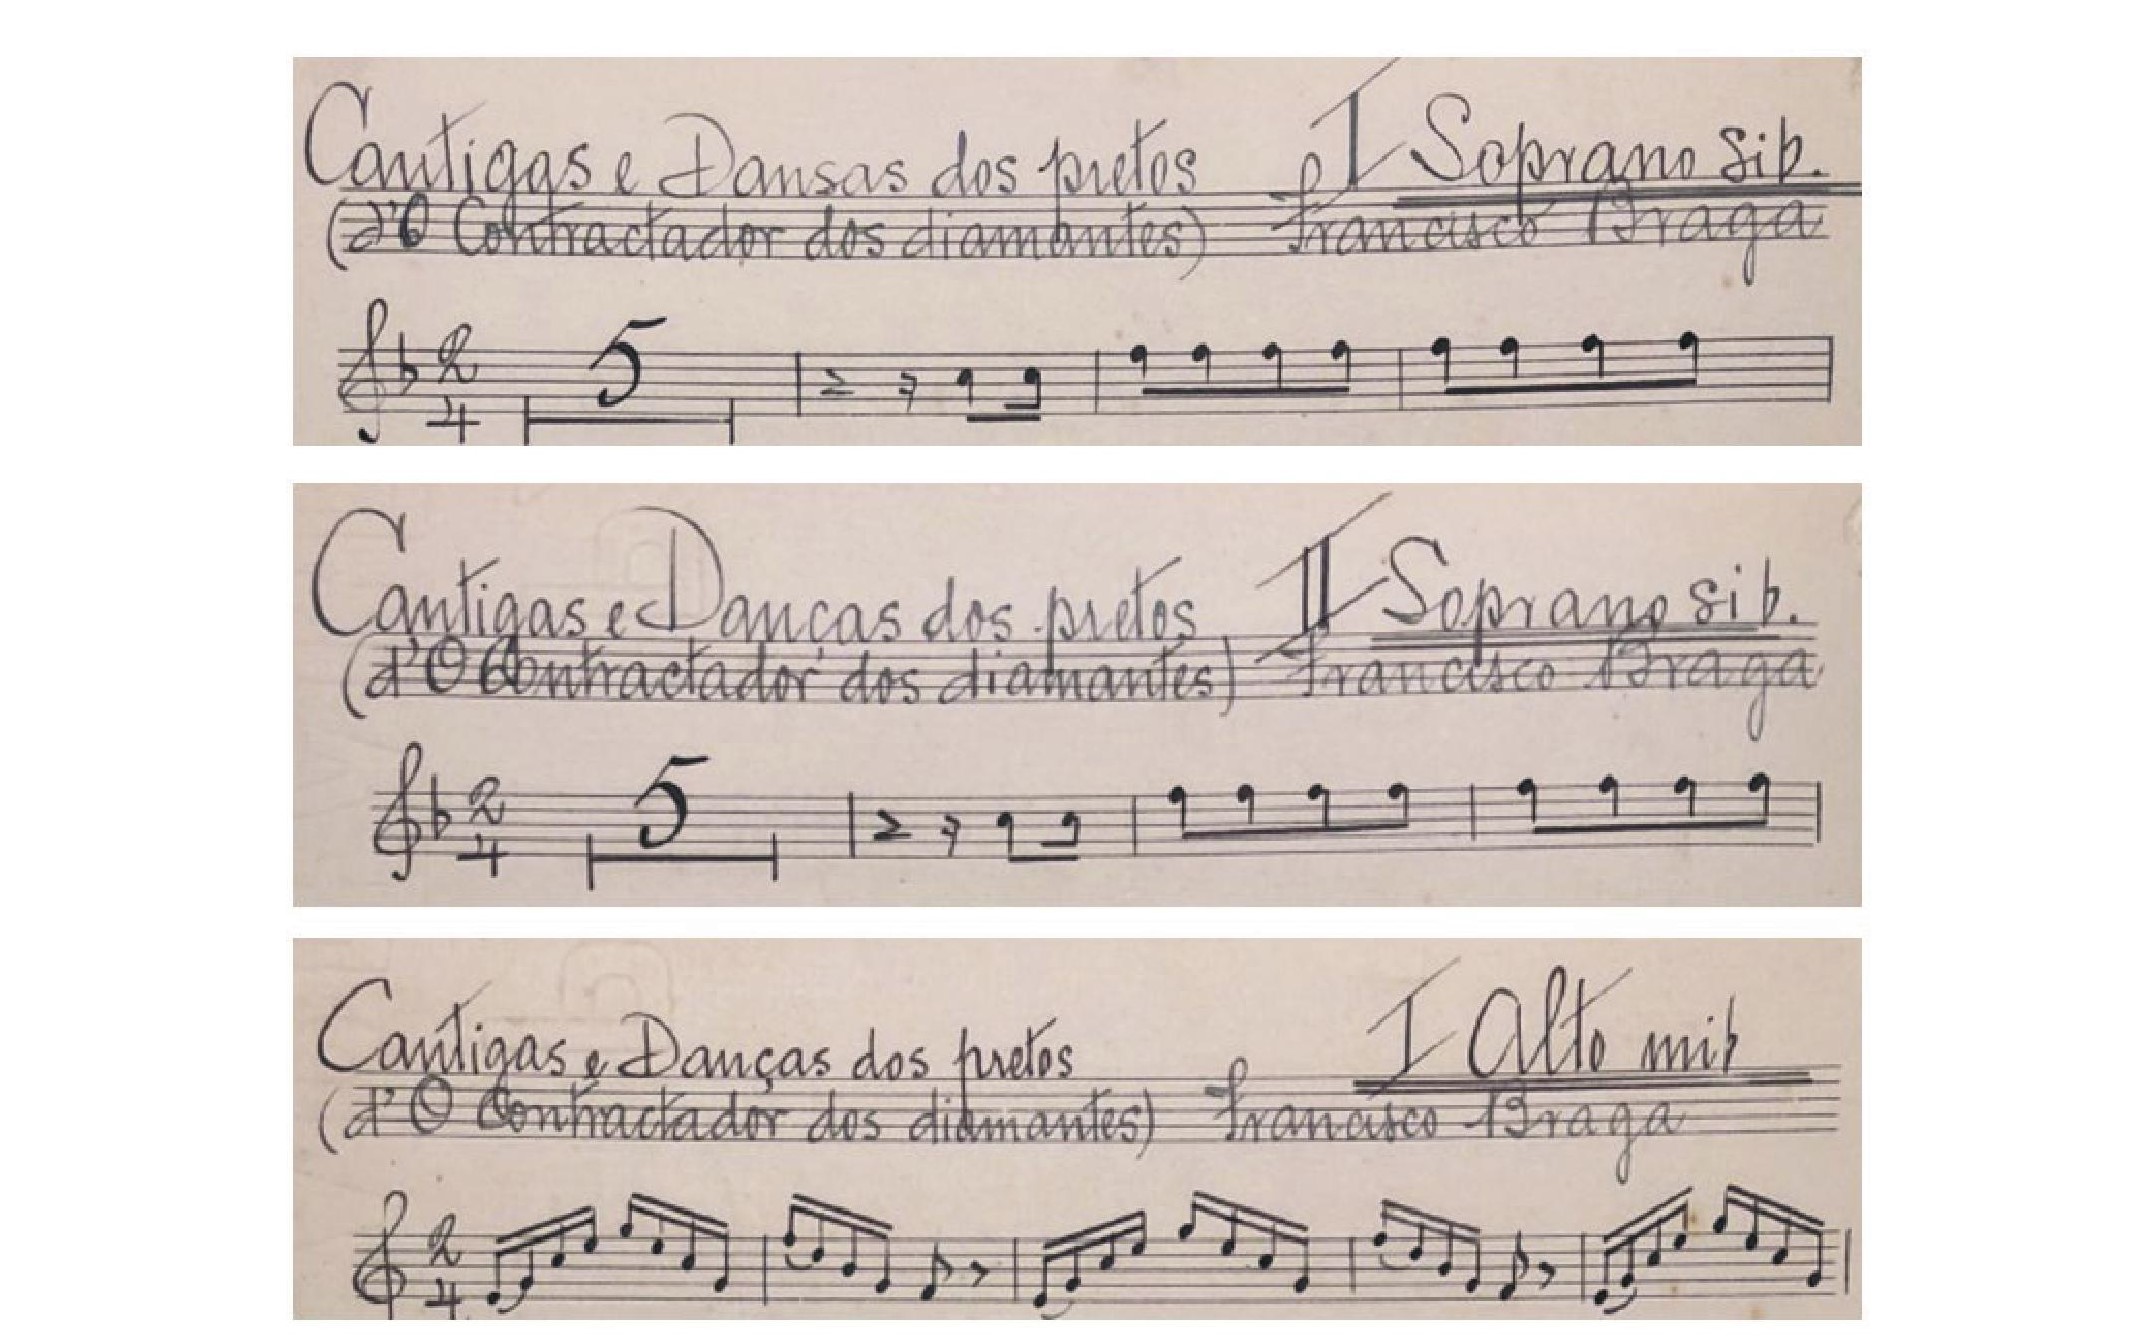 Cantigas e Dansas dos pretos I Soprano sib.
(d'O Contractador dos diamantes) Francisco Braga
2
4
5
Cantigas e Danças dos pretos II Soprano sib.
(d'O Contractador dos diamantes) Francisco Braga
2
4
5
Cantigas e Danças dos pretos I Alto mib
(d'O Contractador dos diamantes) Francisco Braga
2
4